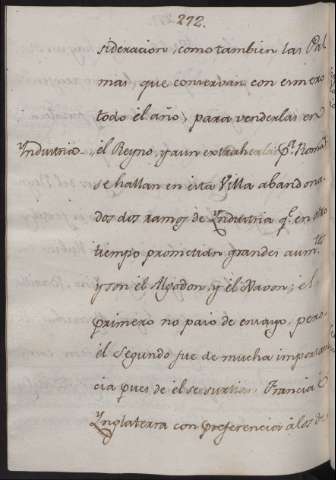 272.
sideracion, como tambien las Pal
mas, que conservan con esmero
todo el año, para venderlas en
Yndustria el Reyno, y aun extraherlas pª. Roma
se hallan en esta Villa abandona
dos dos ramos de Yndustria qᵉ. en otro
tiempo prometian grandes aumᵗᵒˢ
y son el Algodon, y el Xavon; el
primero no pasó de ensayo, pero
el Segundo fue de mucha importan
cia pues de él se surtian Francia è
Ynglaterra con preferencia à los de